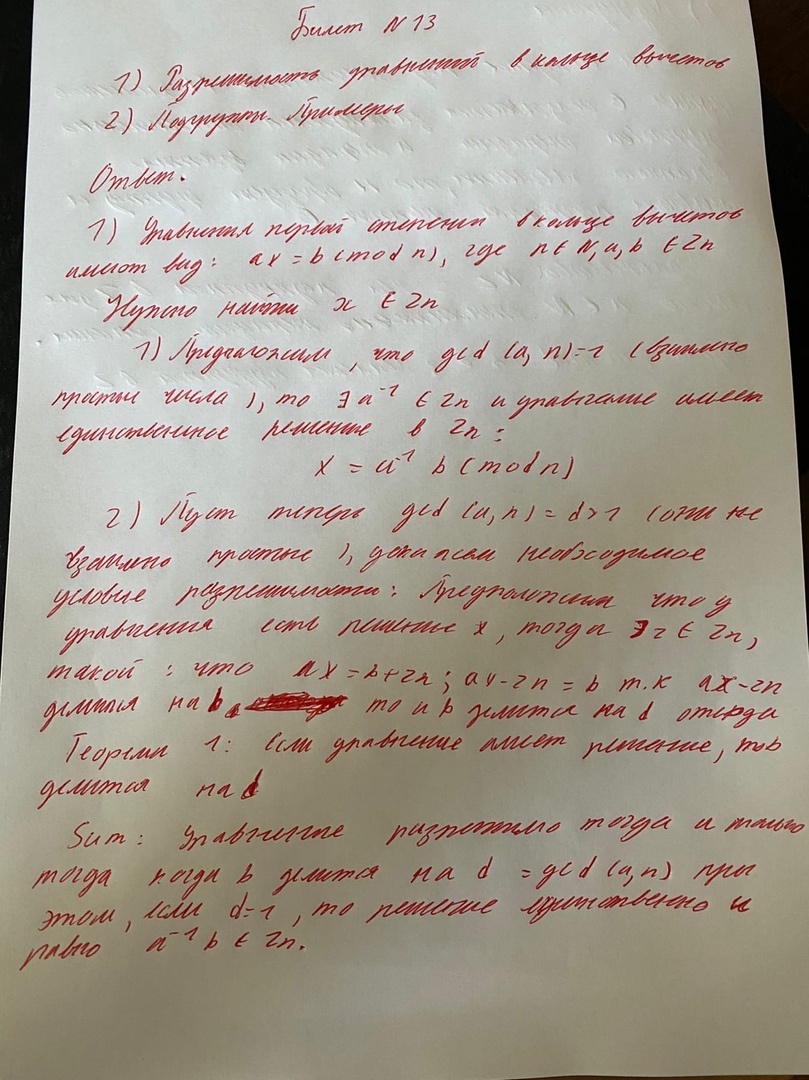 Билет N 13
1) Разрешимость уравнений в кольце вычетов
2) Подгруппы. Примеры
Ответ.
1) Уравнения первой степени в кольце вычетов
имеют вид: ax = b (mod n), где n ∈ N, a, b ∈ Zn
Нужно найти x ∈ Zn
1) Предположим, что gcd (a, n)=1 (взаимно
простые числа), то ∃ a⁻¹ ∈ Zn и уравнение имеет
единственное решение в Zn:
x = a⁻¹ b (mod n)
2) Пуст теперь gcd (a, n) = d>1 (они не
взаимно простые), докажем необходимое
условие разрешимости: Предположим что у
уравнения есть решение x, тогда ∃ z ∈ Zn,
такой: что ax = b + zn; ax - zn = b т.к ax - zn
делится на b, то и b делится на d отсюда
Теорема 1: Если уравнение имеет решение, то b
делится на d
Sum: Уравнение разрешимо тогда и только
тогда когда b делится на d = gcd (a, n) при
этом, если d=1, то решение единственно и
равно a⁻¹ b ∈ Zn.